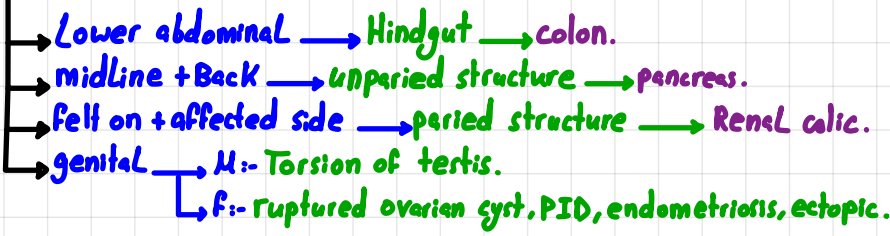 Lower abdominal → Hindgut → colon.
midline + Back → unparied structure → pancreas.
felt on + affected side → paried structure → Renal colic.
genital → M:- Torsion of testis.
→ f:- ruptured ovarian cyst, PID, endometriosis, ectopic.